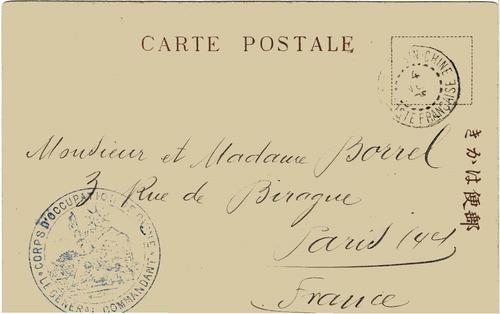 CARTE POSTALE
CHINE
POSTE FRANÇAISE
Monsieur et Madame Borrel
3 Rue de Birague
Paris (4e)
France
CORPS D'OCCUPATION DE CHINE
LE GÉNÉRAL COMMANDANT
郵便はかき